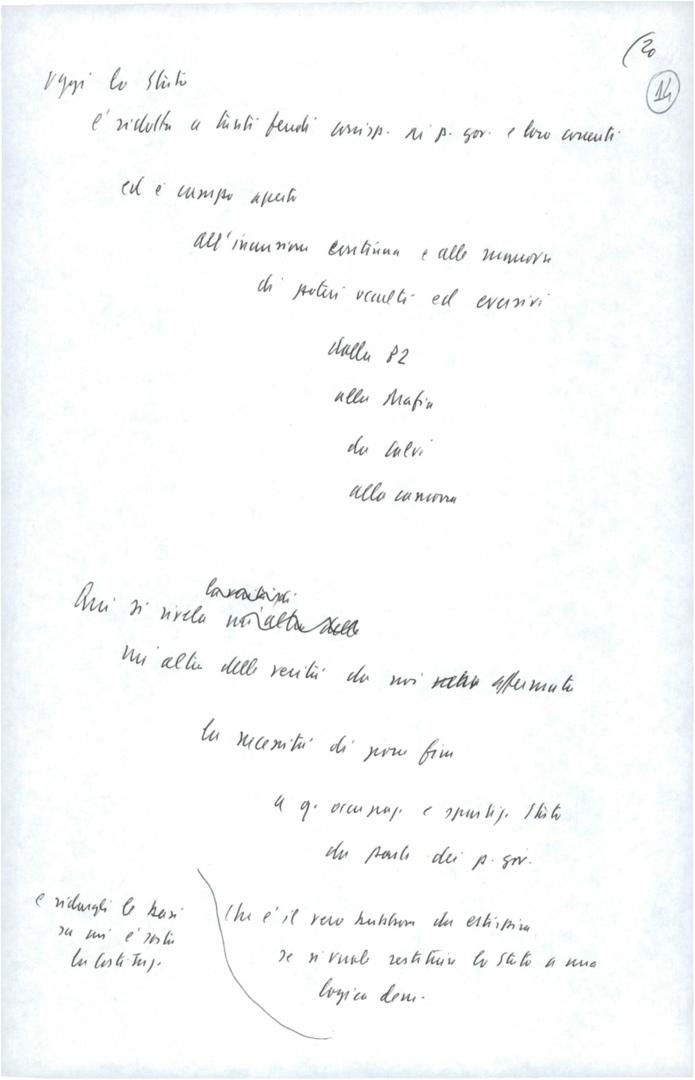 (20
14
Oggi lo Stato
è ridotto a tanti feudi corrisp. ai p. gov. e loro correnti
ed è campo aperto
all'incursione continua e alle manovre
di poteri occulti ed eversivi
dalla P2
alla Mafia
da Calvi
alla camorra
Qui si rivela
un'altra delle verità da noi affermate
la necessità di porre fine
a q. occupaz. e spartiz. Stato
da parte dei p. gov.
Che è il vero da estirpare
se si vuole restituire lo Stato a una
logica dem.
e ridargli le basi
su cui è sorta
la Costituz.